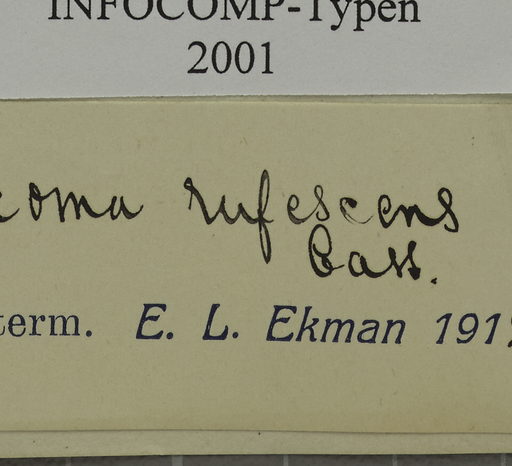 INFOCOMP-Typen
2001
coma rufescens
Cass.
term. E. L. Ekman 191